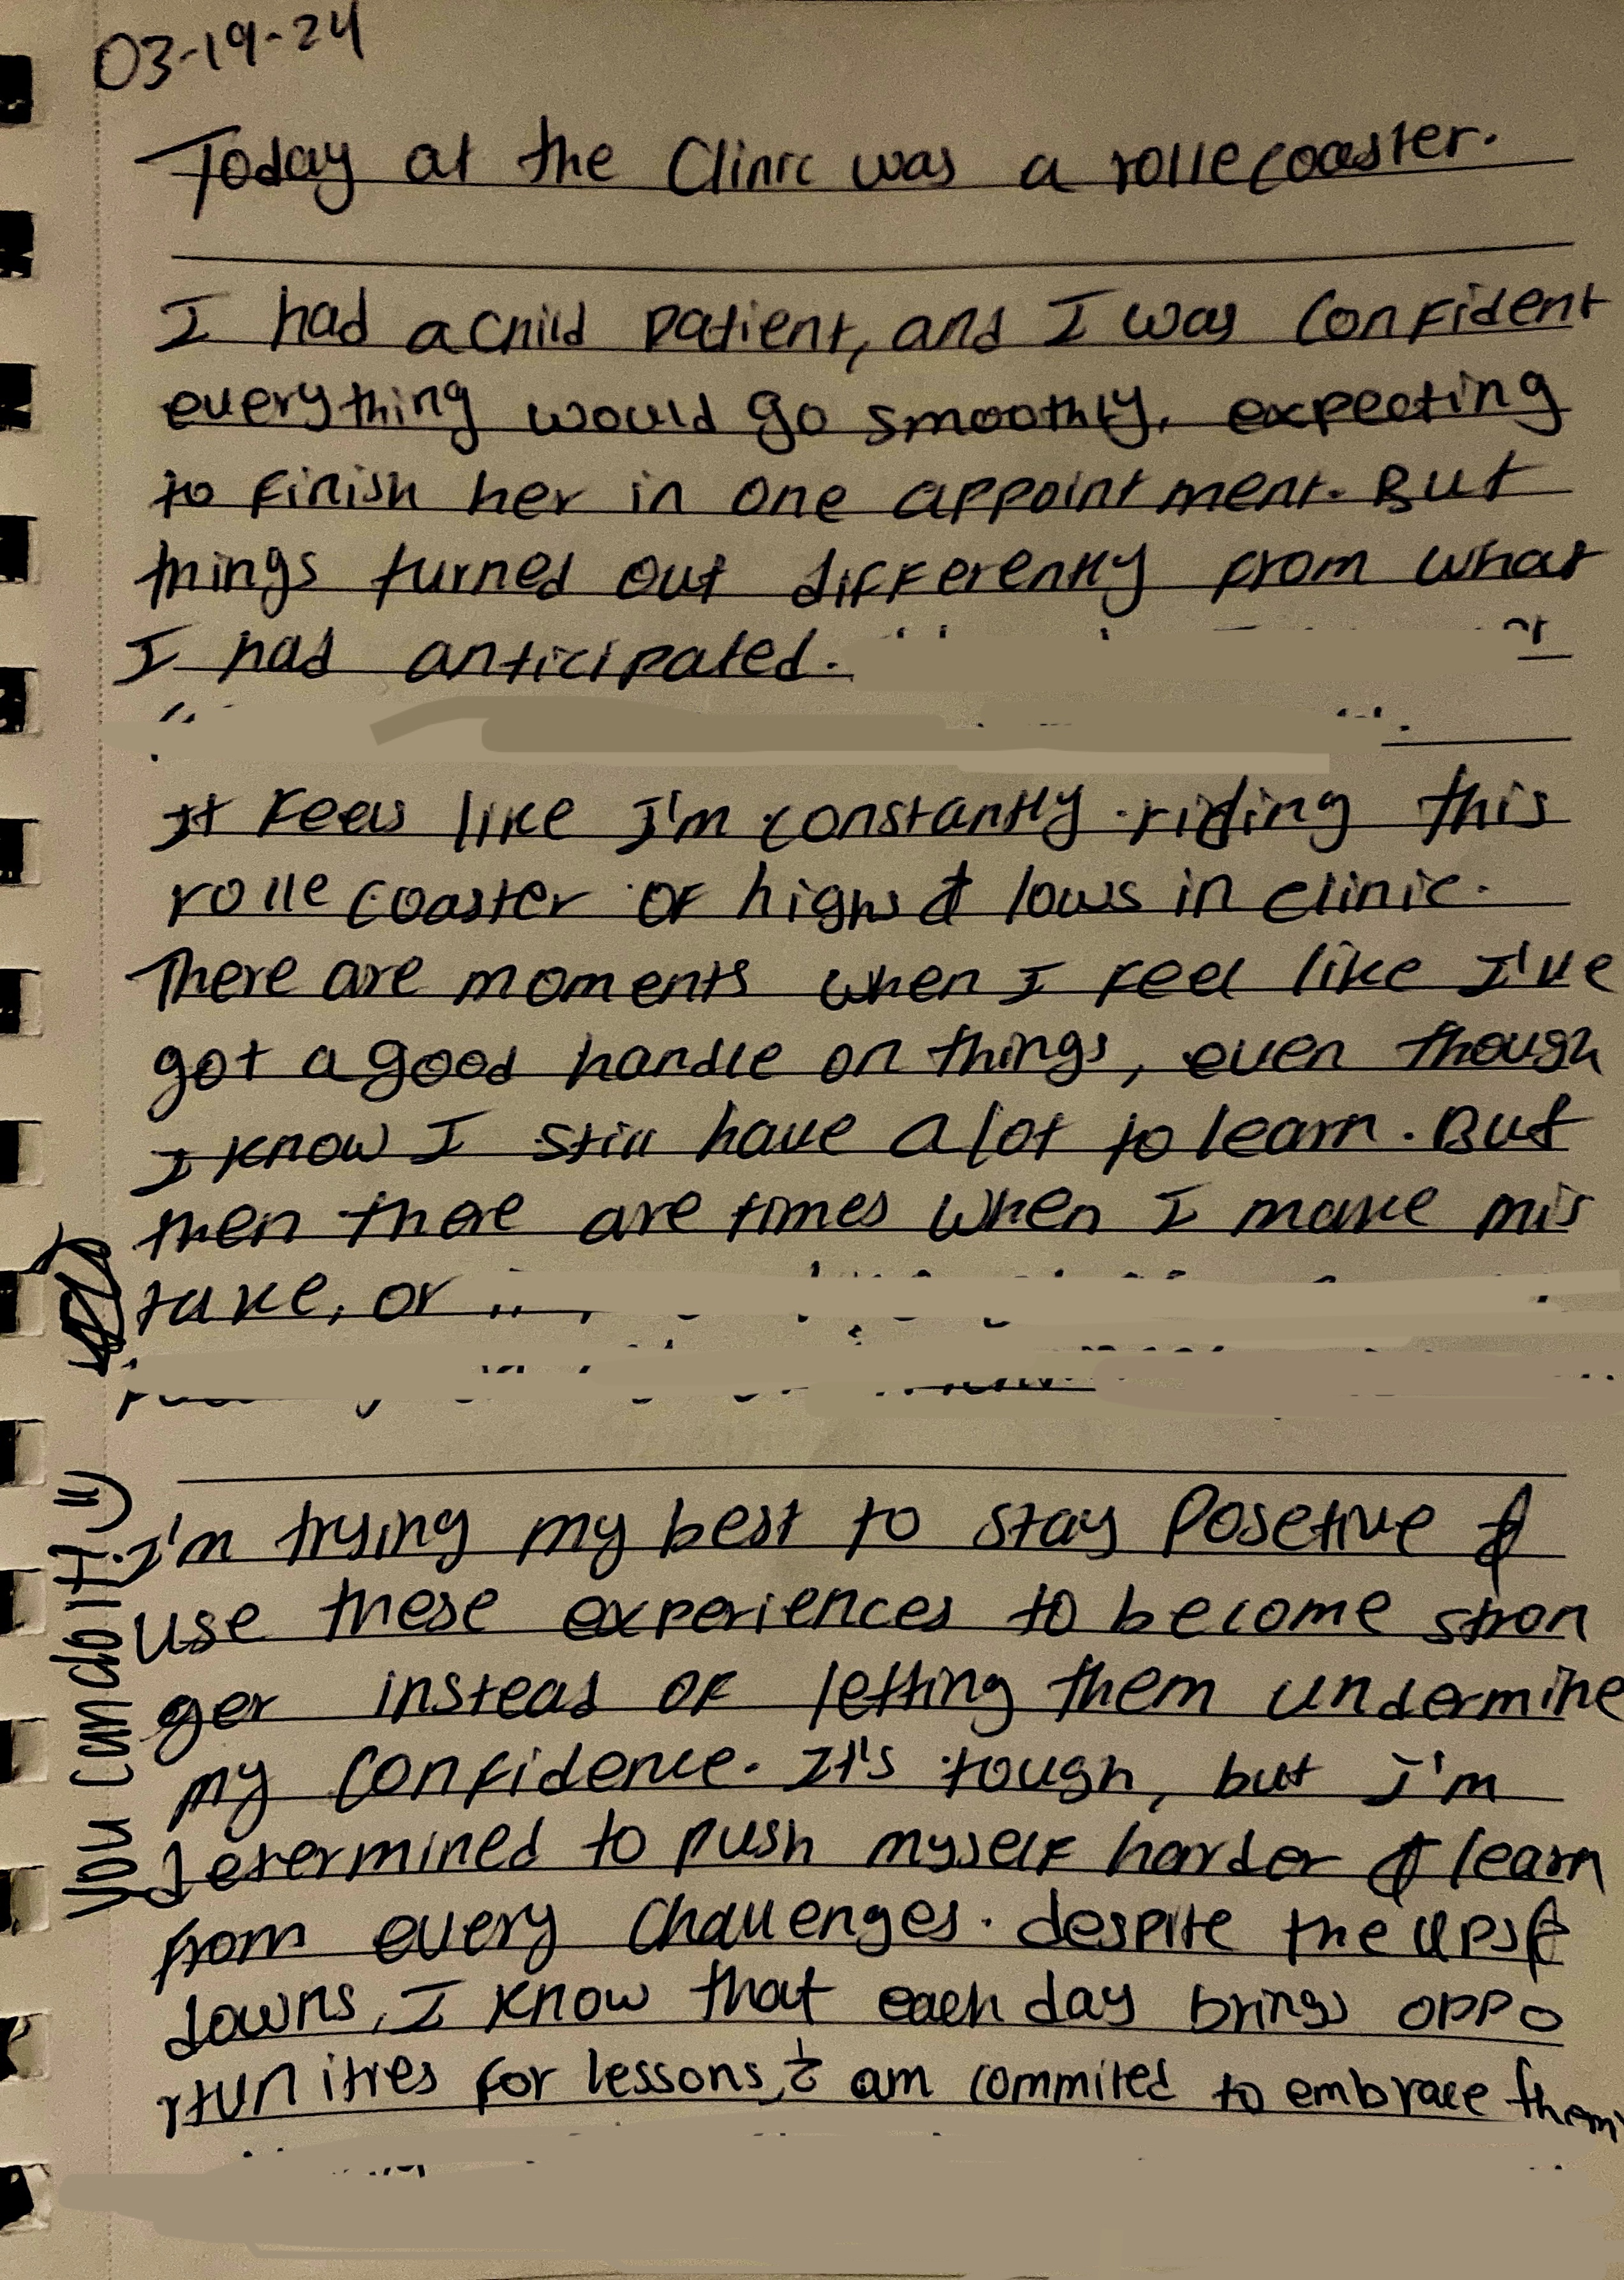 03-19-24
Today at the Clinic was a rollecoaster.
I had a child patient, and I was confident
everything would go smoothly, expecting
to finish her in one appointment. But
things turned out differently from what
I had anticipated.
It feels like I'm constantly riding this
rollecoaster of highs & lows in clinic.
There are moments when I feel like I've
got a good handle on things, even though
I know I still have a lot to learn. But
then there are times when I make mis
take, or
I'm trying my best to stay Posetive &
use these experiences to become stron
ger instead of letting them undermine
my confidence. It's tough, but I'm
determined to push myself harder & learn
from every challenges. despite the ups &
downs, I know that each day brings oppo
rtunities for lessons, & am commited to embrace them
You can do it! :)